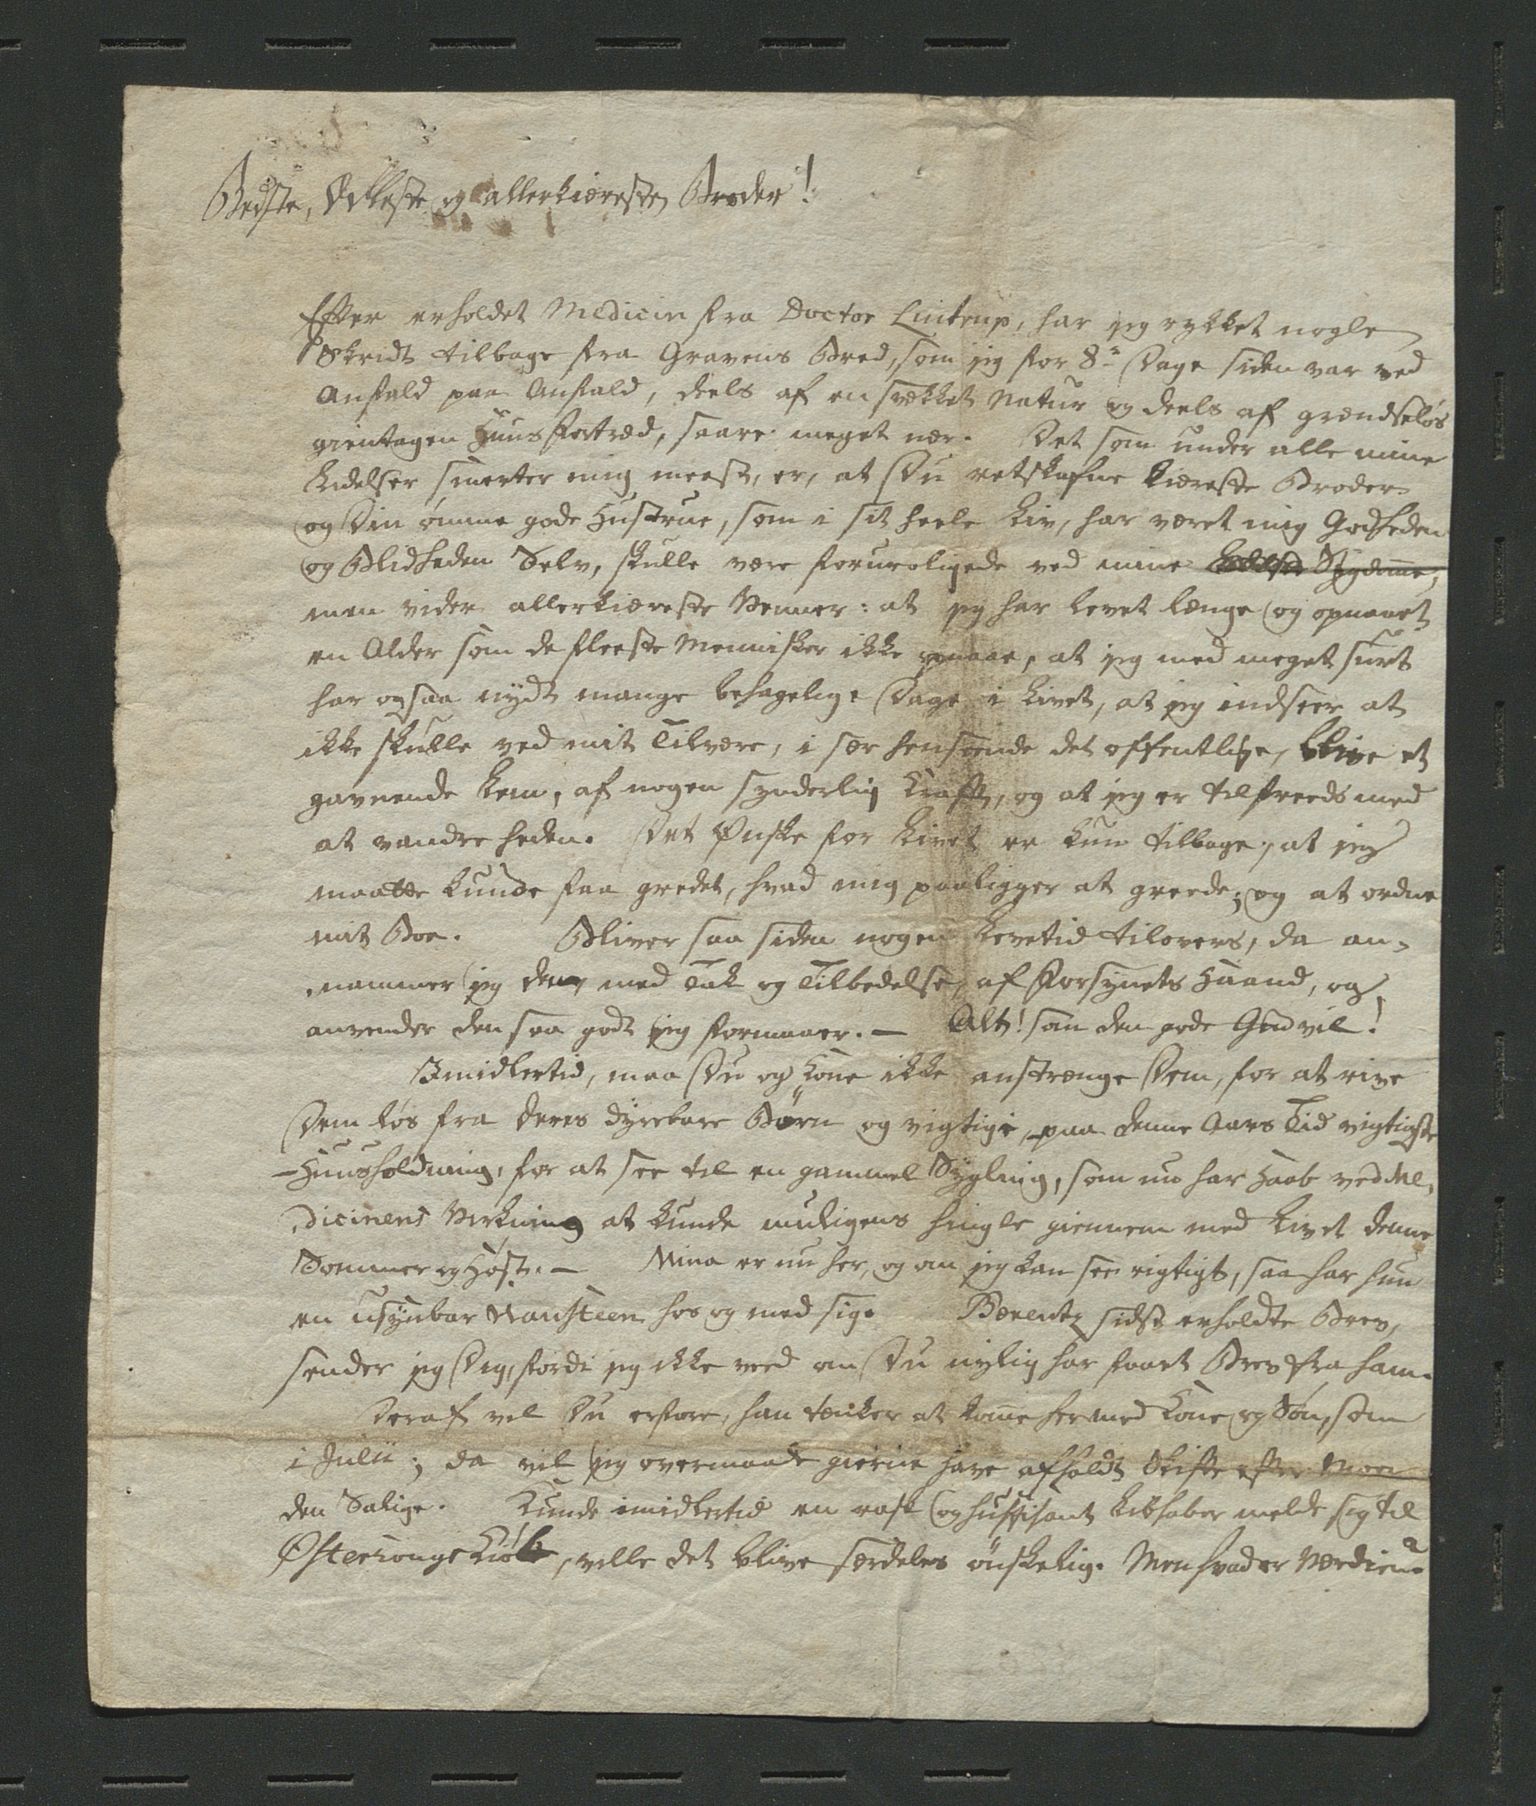 Bedste, Ædleste og allerkiæreste Broder!
Efter erholdet Medicin fra Doctor Lintrup, har jeg rykket nogle
Skridt tilbage fra Gravens Bred, som jeg for 8te Dage siden var ved
Anfald paa Anfald, deels af en svækket Natur og deels af grændseløs
gientagen Huusfortræd, saare meget nær. Det som under alle mine
Lidelser smerter mig meest, er, at Du retskafne kiæreste Broder
og Din ømme gode Hustrue, som i sit heele Liv, har været mig Godheden
og Blidheden Selv, skulle være foruroligede ved mine Sygdomme,
men vider allerkiæreste Venner: at jeg har levet længe og opnaaet
en Alder som de fleeste Mennisker ikke opnaae, at jeg med meget surt
har ogsaa nydt mange behagelige Dage i Livet, at jeg indseer at
ikke skulle ved mit Tilvære, i sær henseende det offentlige, blive et
gavnende Lem, af nogen synderlig Kraft, og at jeg er tilfreds med
at vandre heden. Det Ønske for Livet er kun tilbage, at jeg
maatte kunde faa gredet, hvad mig paaligger at greede; og at ordne
mit Boe. Bliver saa siden nogen Levetid tilovers, da an-
nammer jeg den, med Tak og Tilbedelse, af Forsynets Haand, og
anvender den saa godt jeg formaaer. — Alt! som den gode Gud vil!
Imidlertid, maa Du og Kone ikke anstrænge Dem, for at rive
Dem løs fra deres dyrebare Börn og vigtige, paa denne Aars Tid vigtigste
Huusholdning, for at see til en gammel Sygling, som nu har Haab ved Me-
dicinens Virkning at kunde muligens hingle giennem med Livet denne
Sommer og Høst. — Mina er nu her, og om jeg kan see rigtigt, saa har hun
en usynbar Nansteen hos og med sig. Berentz sidst erholdte Brev,
sender jeg Dig, fordi jeg ikke veed om Du nylig har faaet Brev fra ham.
Deraf vil Du erfare, han tænker at komme her med Kone og Søn, som
i Julii; da vil jeg overmaade gierne have afholdt Skifte efter Moer
den Salige. Kunde imidlertid en rask og suffisant Liebhaber melde sig til
Østerrongs Kiøb, ville det blive særdeles önskelig. Men hvad er Værdien?